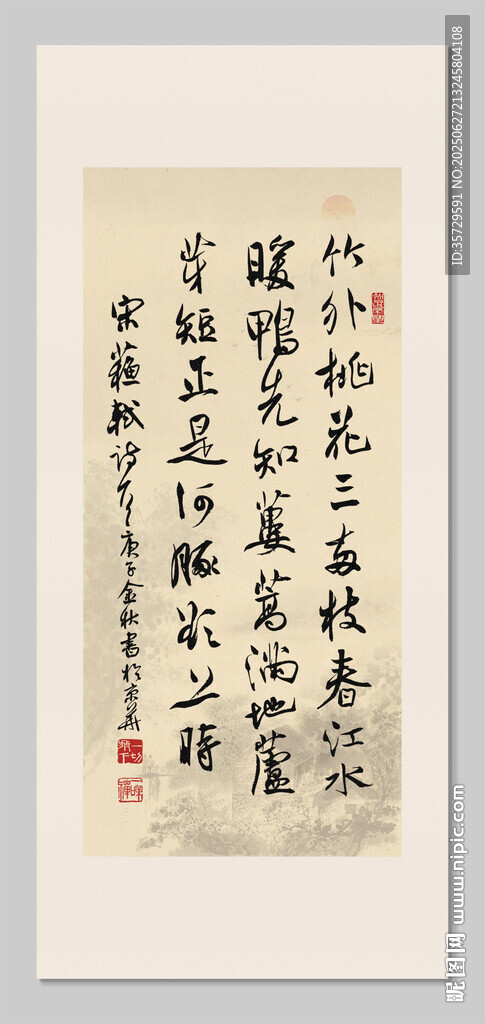 竹外桃花三两枝春江水
暖鴨先知蔞蒿满地蘆
芽短正是河豚欲上時
宋蘇軾诗一首庚子金秋書於京華
一切放下
ID:35729591 NO:20250627213245804108
昵图网 www.nipic.com